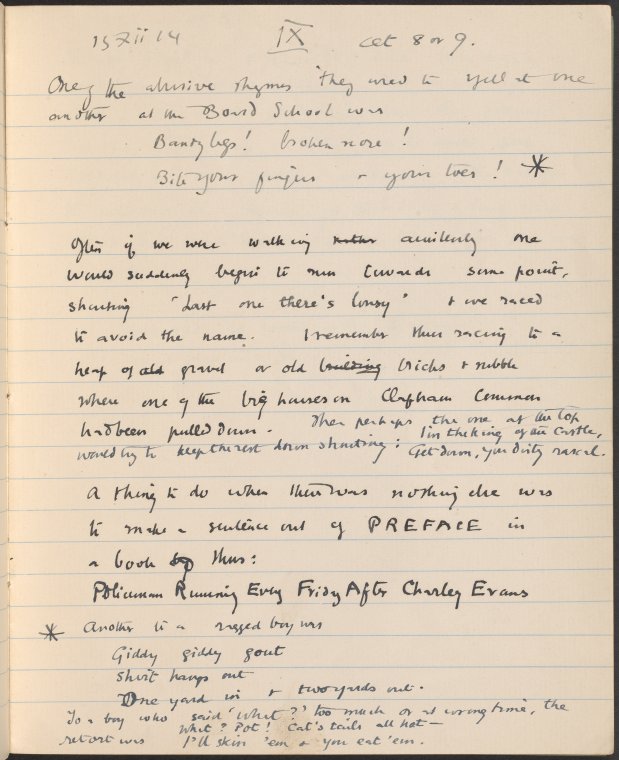 15 xii 14 IX aet 8 or 9.
One of the abusive rhymes they used to yell at one
another at the Board School was
Bandy legs! broken nose!
Bite your fingers & your toes! *
Often if we were walking rather aimlessly one
would suddenly begin to run towards some point,
shouting 'Last one there's lousy' & we raced
to avoid the name. I remember thus racing to a
heap of old gravel or old building bricks & rubble
where one of the big houses on Clapham Common
had been pulled down. Then perhaps the one at the top
would try to keep the rest down shouting: I'm the king of the castle,
Get down, you dirty rascal.
A thing to do when there was nothing else was
to make a sentence out of PREFACE in
a book thus:
Policeman Running Every Friday After Charley Evans
* Another to a ragged boy was
Giddy giddy gout
Shirt hangs out
One yard in & two yards out.
To a boy who said 'what?' too much or at wrong time, the
retort was What? Pot! Cat's tails all hot—
I'll skin 'em & you eat 'em.